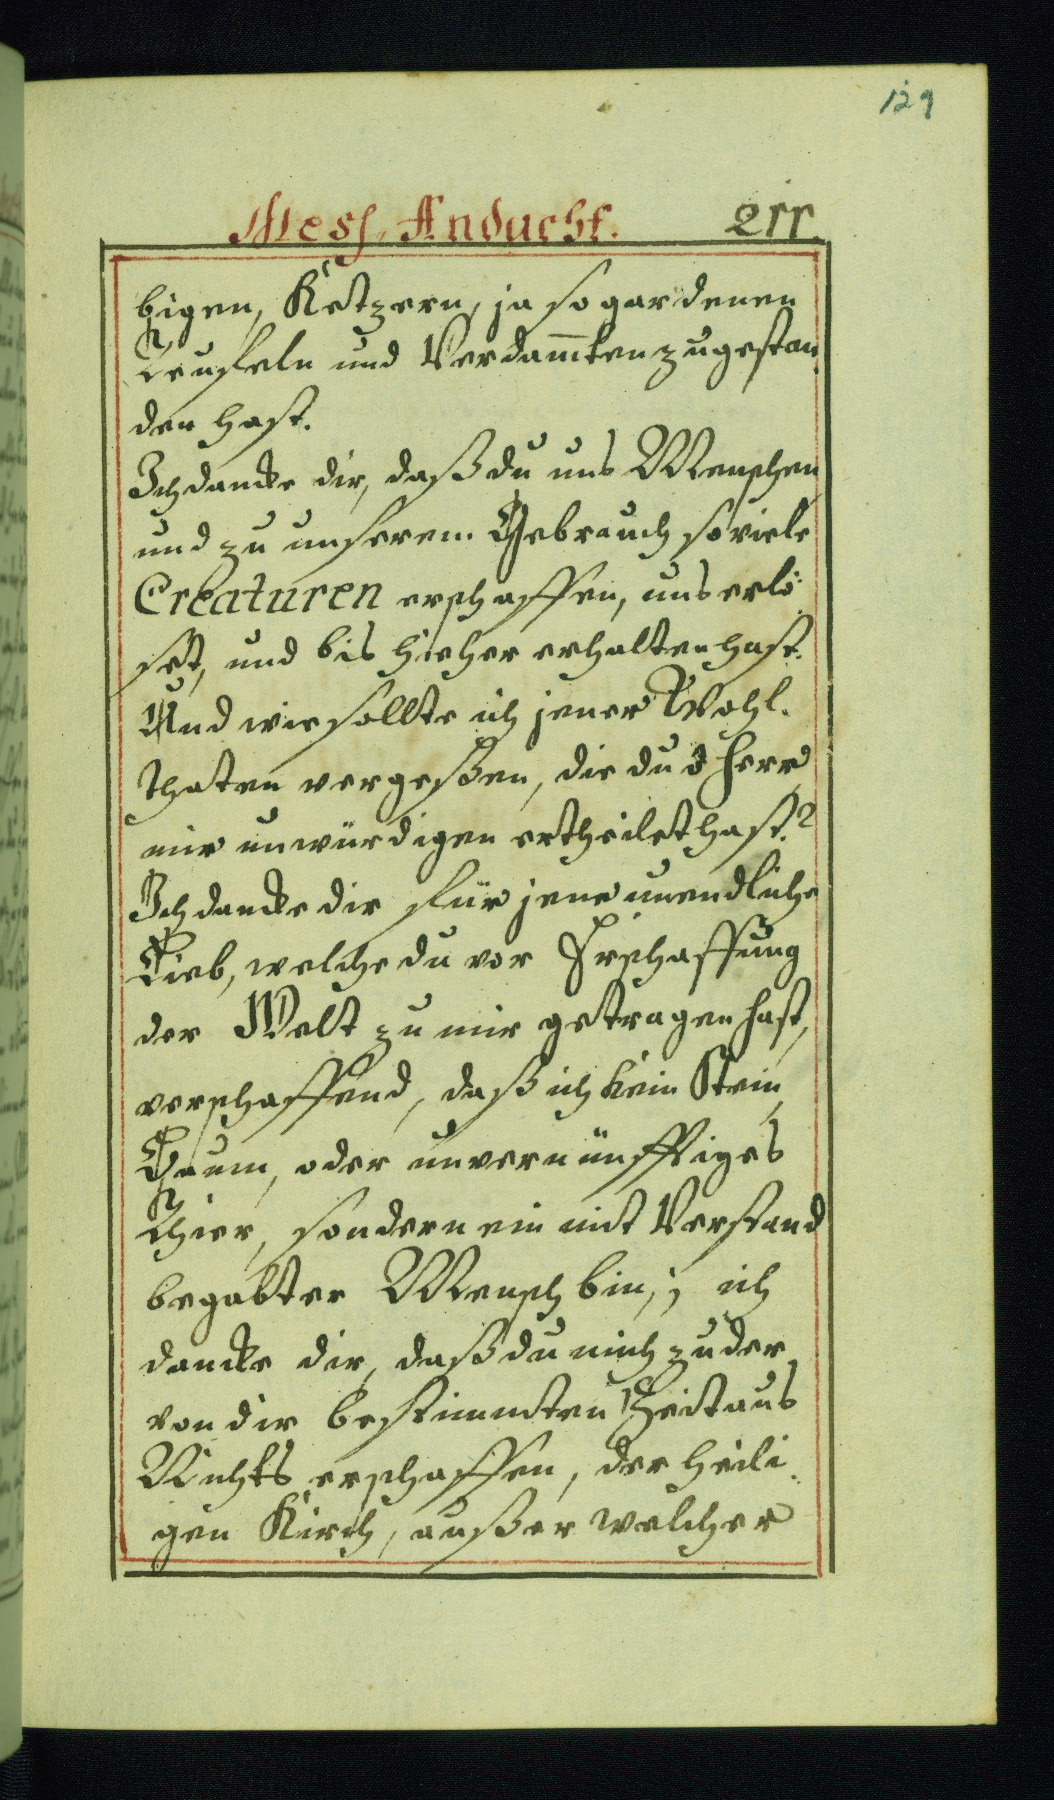 129
Mess-Andacht. 255.
bigen, Ketzern, ja so gar denen
Teufeln und Verdam̄ten zugestan-
den hast.
Ich dancke dir, daß du uns Menschen
und zu unserem Gebrauch so viele
Creaturen erschaffen, uns erlö-
set, und bis hieher erhalten hast.
Und wie sollte ich jener Wohl-
thaten vergeßen, die du ô Herr
mir unwürdigen ertheilet hast?
Ich dancke dir für jene unendliche
Lieb, welche du vor Erschaffung
der Welt zu mir getragen hast,
verschaffend, daß ich kein Stein,
Baum, oder unvernünfftiges
Thier, sondern ein mit Verstand
begabter Mensch bin; ich
dancke dir, daß du mich zu der
von dir bestimmten Zeit aus
Nichts erschaffen, der heili-
gen Kirch, außer welcher